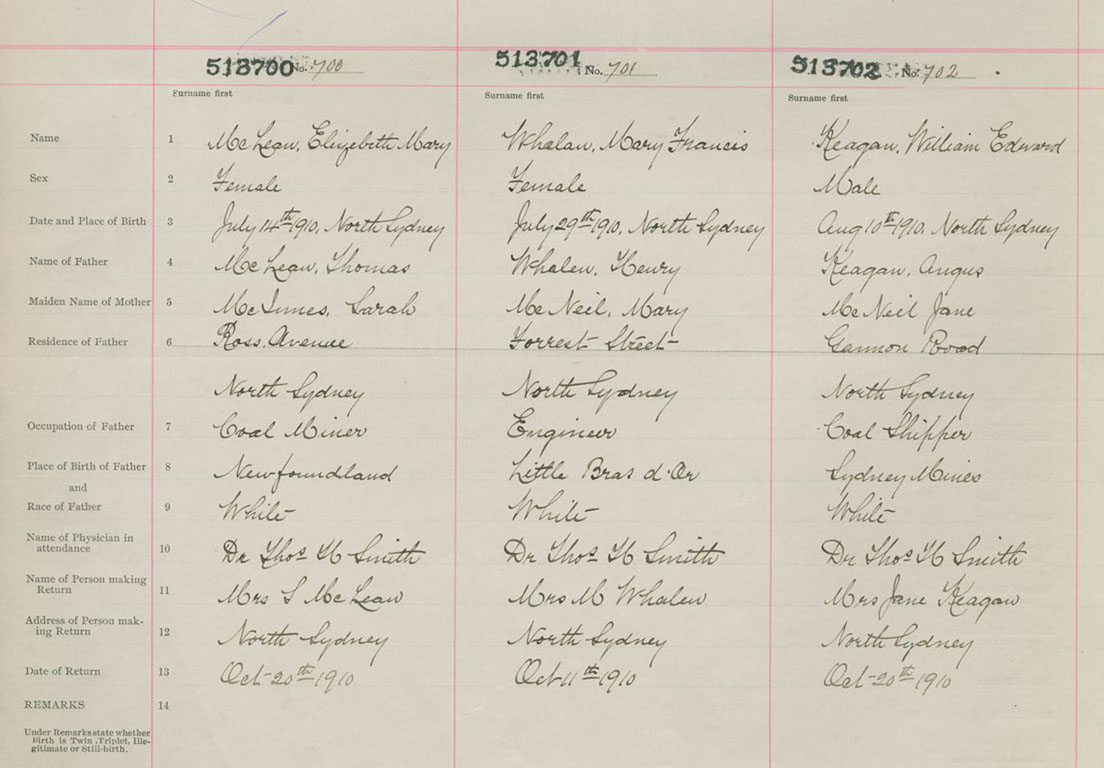 513700 No. 700 513701 No. 701 513702 No. 702
Surname first Surname first Surname first
Name 1 McLean, Elizebeth Mary Whalan, Mary Francis Keagan, William Edward
Sex 2 Female Female Male
Date and Place of Birth 3 July 14th 1910, North Sydney July 29th 1910, North Sydney Aug 10th 1910, North Sydney
Name of Father 4 McLean, Thomas Whalen, Henry Keagan, Angus
Maiden Name of Mother 5 McInnes, Sarah McNeil, Mary McNeil Jane
Residence of Father 6 Ross Avenue Forrest Street Gannon Road
North Sydney North Sydney North Sydney
Occupation of Father 7 Coal Miner Engineer Coal Shipper
Place of Birth of Father 8 Newfoundland Little Bras d'Or Sydney Mines
and
Race of Father 9 White White White
Name of Physician in
attendance 10 Dr Thos H Smith Dr Thos H Smith Dr Thos H Smith
Name of Person making
Return 11 Mrs S McLean Mrs M Whalen Mrs Jane Keagan
Address of Person mak-
ing Return 12 North Sydney North Sydney North Sydney
Date of Return 13 Oct-20th 1910 Oct 11th 1910 Oct-20th 1910
REMARKS 14
Under Remarks state whether
Birth is Twin, Triplet, Ille-
gitimate or Still-birth.